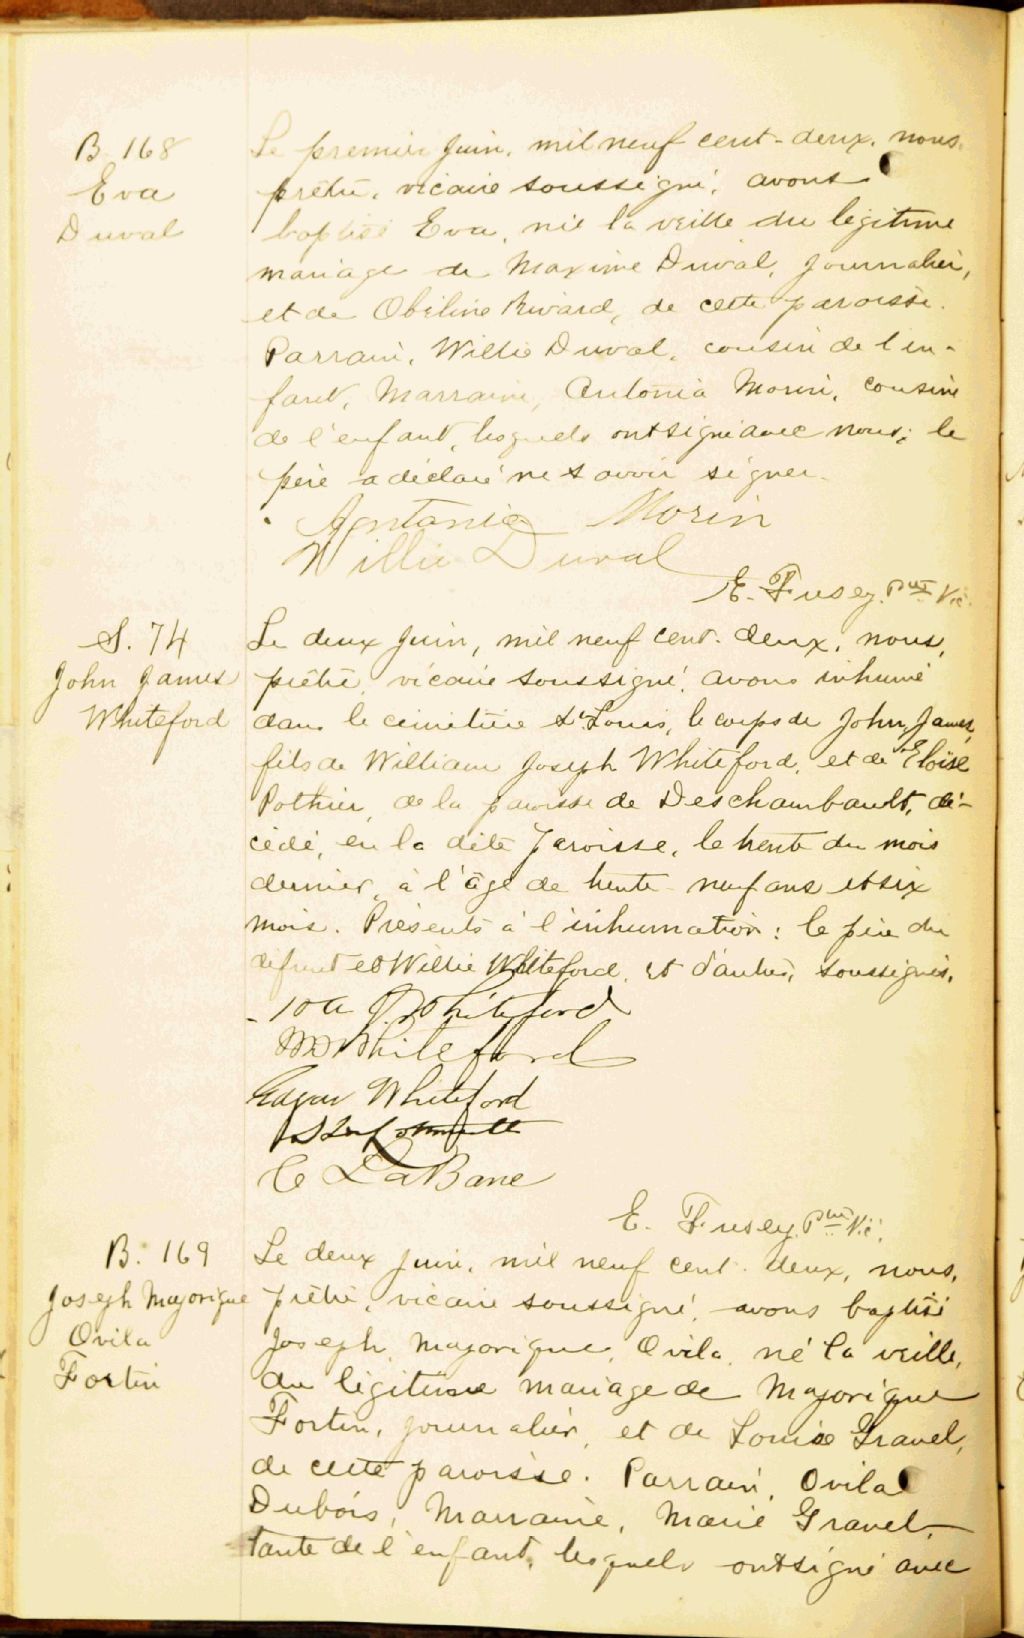 B. 168
Eva
Duval
Le premier juin, mil neuf cent-deux, nous,
prêtre, vicaire soussigné, avons
baptisé Eva, née la veille du légitime
mariage de Maxime Duval, journalier,
et de Obéline Rivard, de cette paroisse.
Parrain, Willie Duval, cousin de l'en-
fant, Marraine, Antonia Morin, cousine
de l'enfant, lesquels ont signé avec nous; le
père a déclaré ne savoir signer.
Antonia Morin
Willie Duval
E. Fusey, Ptre Vic.
S. 74
John James
Whiteford
Le deux juin, mil neuf cent-deux, nous,
prêtre, vicaire soussigné, avons inhumé
dans le cimetière St Louis, le corps de John James,
fils de William Joseph Whiteford, et de Eloïse
Pothier, de la paroisse de Deschambault, dé-
cédé, en la dite paroisse, le trente du mois
dernier, à l'âge de trente-neuf ans et six
mois. Présents à l'inhumation: le père du
défunt et Willie Whiteford, et d'autres, soussignés.
Whiteford
Whiteford
Edgar Whiteford
LaBarre
E. Fusey, Ptre Vic.
B. 169
Joseph Majorique
Ovila
Fortin
Le deux juin, mil neuf cent-deux, nous,
prêtre, vicaire soussigné, avons baptisé
Joseph, Majorique, Ovila, né la veille,
du légitime mariage de Majorique
Fortin, journalier, et de Louise Gravel,
de cette paroisse. Parrain, Ovila
Dubois, Marraine, Marie Gravel,
tante de l'enfant, lesquels ont signé avec